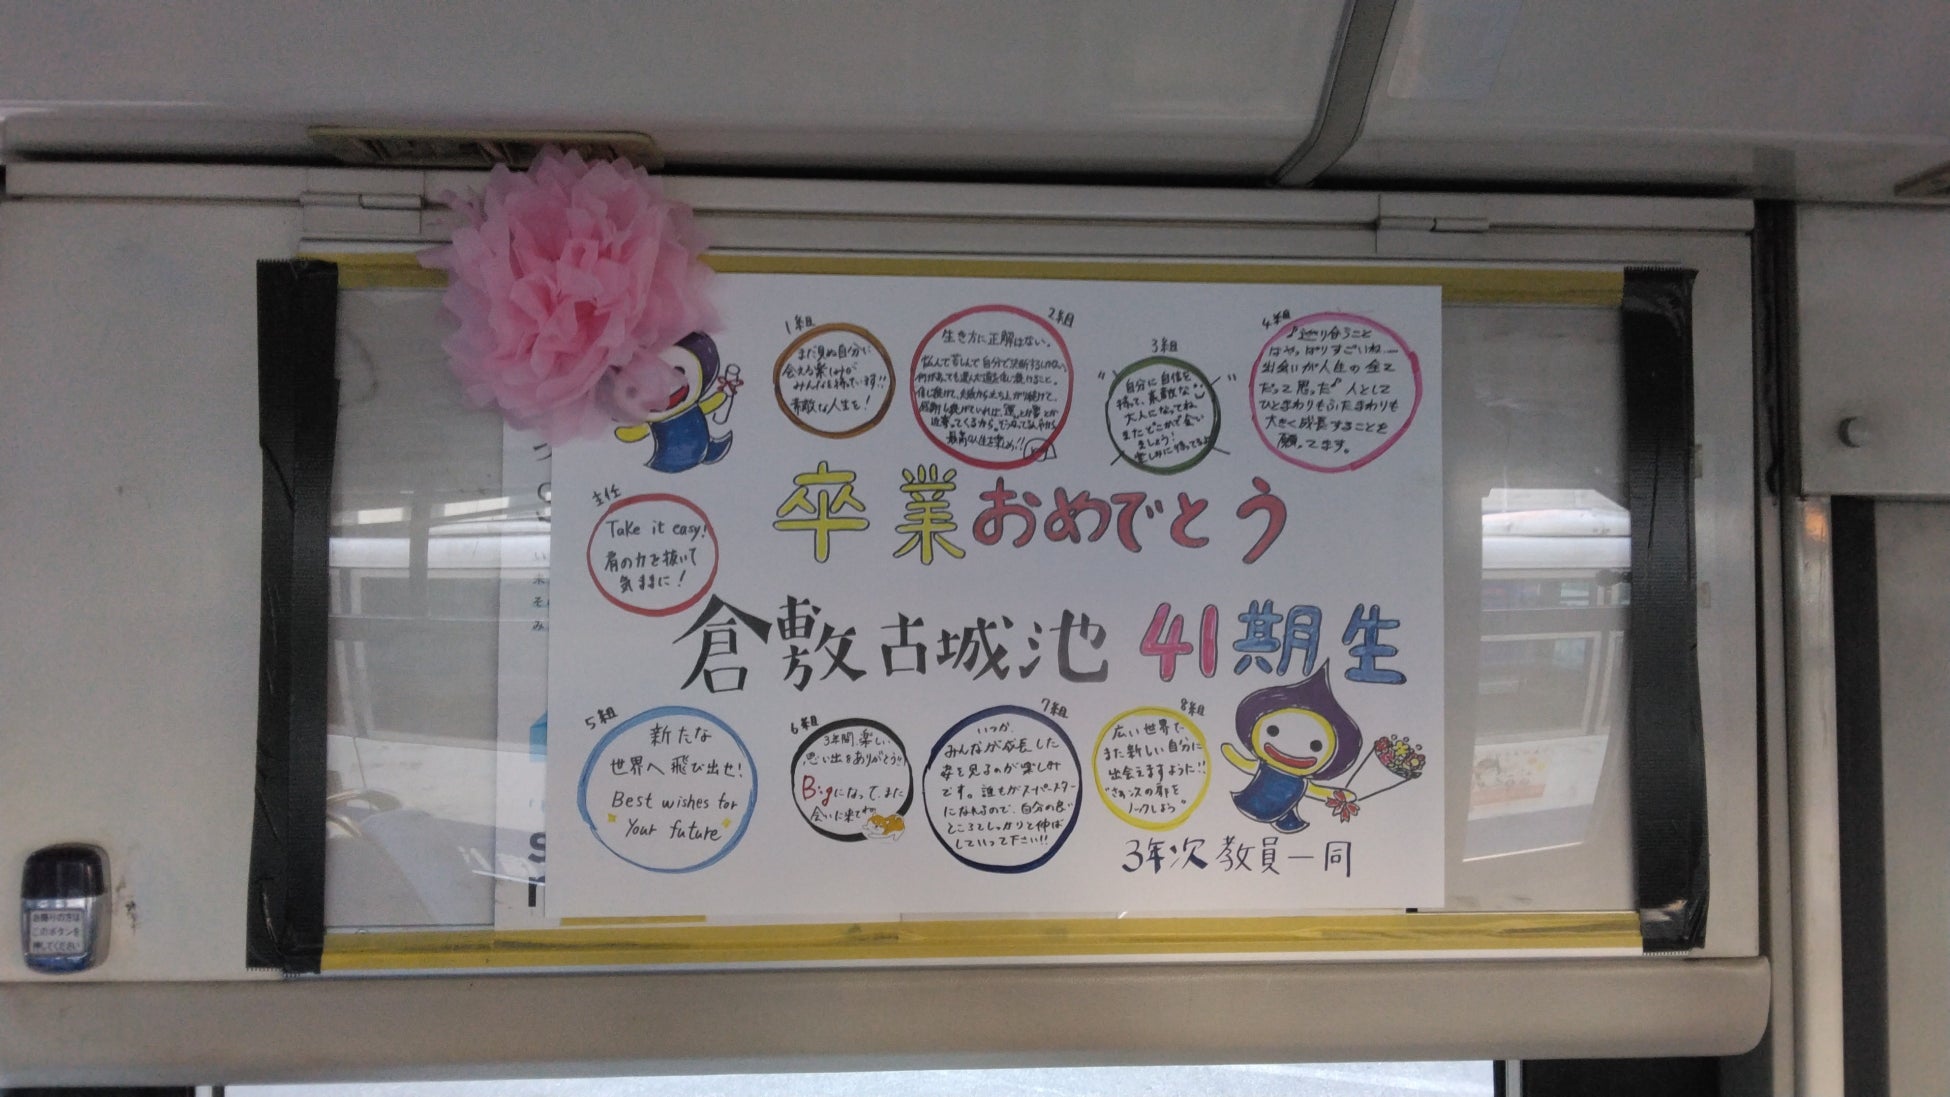 1組
まだ見ぬ自分に
会える楽しみが
みんなを待っています!!
素敵な人生を!
2組
生き方に正解はない。
悩んで苦しんで自分で決断するしかない。
何があっても選んだ道を信じ続けること。
最高な人生を歩め!!
3組
自分に自信を
持って、素敵な
大人になってね
またどこかで会い
ましょう!
楽しみに待ってるよ
4組
♪巡り合うこと
はやっぱりすごいね
出会いが人生の全て
だって思った♪人として
ひとまわりもふたまわりも
大きく成長することを
願ってます。
主任
Take it easy!
肩の力を抜いて
気ままに!
卒業おめでとう
倉敷古城池 41期生
5組
新たな
世界へ飛び出せ!
Best wishes for
Your future
6組
3年間、楽しい
思い出をありがとう!!
Bigになって、また
会いに来てね
7組
いつか、
みんなが成長した
姿を見るのが楽しみ
です。誰もがスーパースター
になれるので、自分の良い
ところをしっかりと伸ば
していって下さい!!
8組
広い世界で、
また新しい自分に
出会えますように!!
"さあ次の扉を
ノックしよう"
3年次教員一同
お降りの方は
このボタンを
押してください